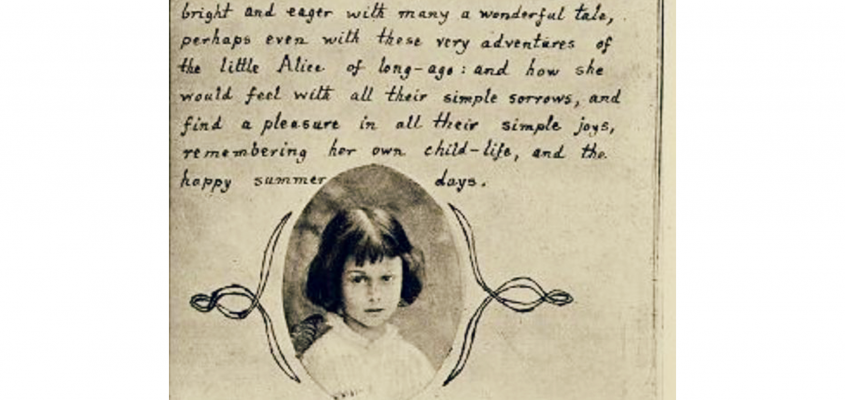 bright and eager with many a wonderful tale,
perhaps even with these very adventures of
the little Alice of long-ago: and how she
would feel with all their simple sorrows, and
find a pleasure in all their simple joys,
remembering her own child-life, and the
happy summer days.